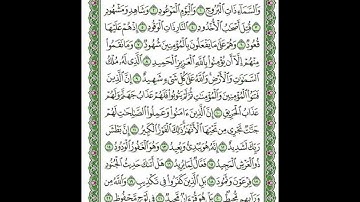 وَالسَّمَاءِ ذَاتِ الْبُرُوجِ ١ وَالْيَوْمِ الْمَوْعُودِ ٢ وَشَاهِدٍ وَمَشْهُودٍ
٣ قُتِلَ أَصْحَٰبُ الْأُخْدُودِ ٤ النَّارِ ذَاتِ الْوَقُودِ ٥ إِذْ هُمْ عَلَيْهَا
قُعُودٌ ٦ وَهُمْ عَلَىٰ مَا يَفْعَلُونَ بِالْمُؤْمِنِينَ شُهُودٌ ٧ وَمَا نَقَمُوا
مِنْهُمْ إِلَّا أَن يُؤْمِنُوا بِاللَّهِ الْعَزِيزِ الْحَمِيدِ ٨ الَّذِي لَهُ مُلْكُ
السَّمَٰوَٰتِ وَالْأَرْضِ وَاللَّهُ عَلَىٰ كُلِّ شَيْءٍ شَهِيدٌ ٩ إِنَّ الَّذِينَ
فَتَنُوا الْمُؤْمِنِينَ وَالْمُؤْمِنَٰتِ ثُمَّ لَمْ يَتُوبُوا فَلَهُمْ عَذَابُ جَهَنَّمَ وَلَهُمْ
عَذَابُ الْحَرِيقِ ١٠ إِنَّ الَّذِينَ ءَامَنُوا وَعَمِلُوا الصَّٰلِحَٰتِ لَهُمْ
جَنَّٰتٌ تَجْرِي مِن تَحْتِهَا الْأَنْهَٰرُ ذَٰلِكَ الْفَوْزُ الْكَبِيرُ ١١ إِنَّ بَطْشَ
رَبِّكَ لَشَدِيدٌ ١٢ إِنَّهُ هُوَ يُبْدِئُ وَيُعِيدُ ١٣ وَهُوَ الْغَفُورُ الْوَدُودُ ١٤
ذُو الْعَرْشِ الْمَجِيدُ ١٥ فَعَّالٌ لِّمَا يُرِيدُ ١٦ هَلْ أَتَىٰكَ حَدِيثُ الْجُنُودِ
١٧ فِرْعَوْنَ وَثَمُودَ ١٨ بَلِ الَّذِينَ كَفَرُوا فِي تَكْذِيبٍ ١٩ وَاللَّهُ مِن
وَرَائِهِم مُّحِيطٌ ٢٠ بَلْ هُوَ قُرْءَانٌ مَّجِيدٌ ٢١ فِي لَوْحٍ مَّحْفُوظٍ ٢٢